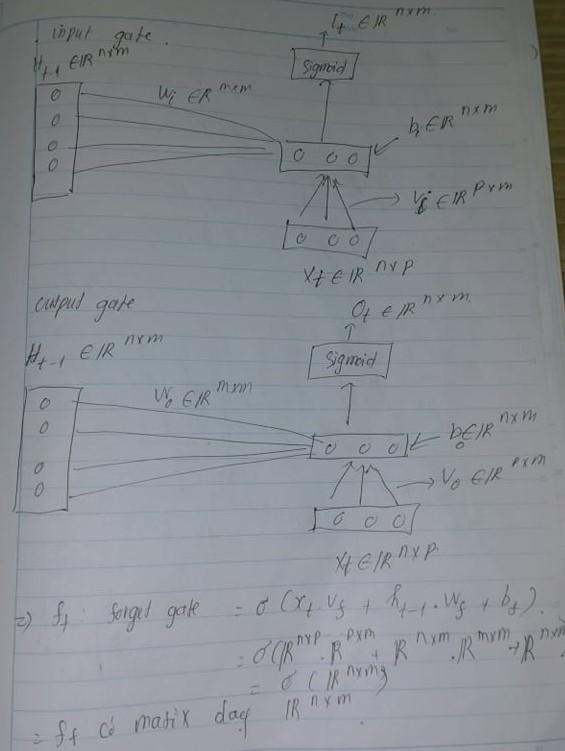 input gate.
I_t ∈ ℝ^{n×m}
H_{t-1} ∈ ℝ^{n×m}
Sigmoid
W_i ∈ ℝ^{m×m}
b_i ∈ ℝ^{n×m}
V_i ∈ ℝ^{p×m}
X_t ∈ ℝ^{n×p}
output gate
O_t ∈ ℝ^{n×m}
H_{t-1} ∈ ℝ^{n×m}
Sigmoid
W_o ∈ ℝ^{m×m}
b_o ∈ ℝ^{n×m}
V_o ∈ ℝ^{p×m}
X_t ∈ ℝ^{n×p}
=) f_t: forget gate = σ(x_t.V_f + h_{t-1}.W_f + b_f).
= σ(ℝ^{n×p}.ℝ^{p×m} + ℝ^{n×m}.ℝ^{m×m} + ℝ^{n×m}
= σ(ℝ^{n×m})
= f_t có matix dạg ℝ^{n×m}.